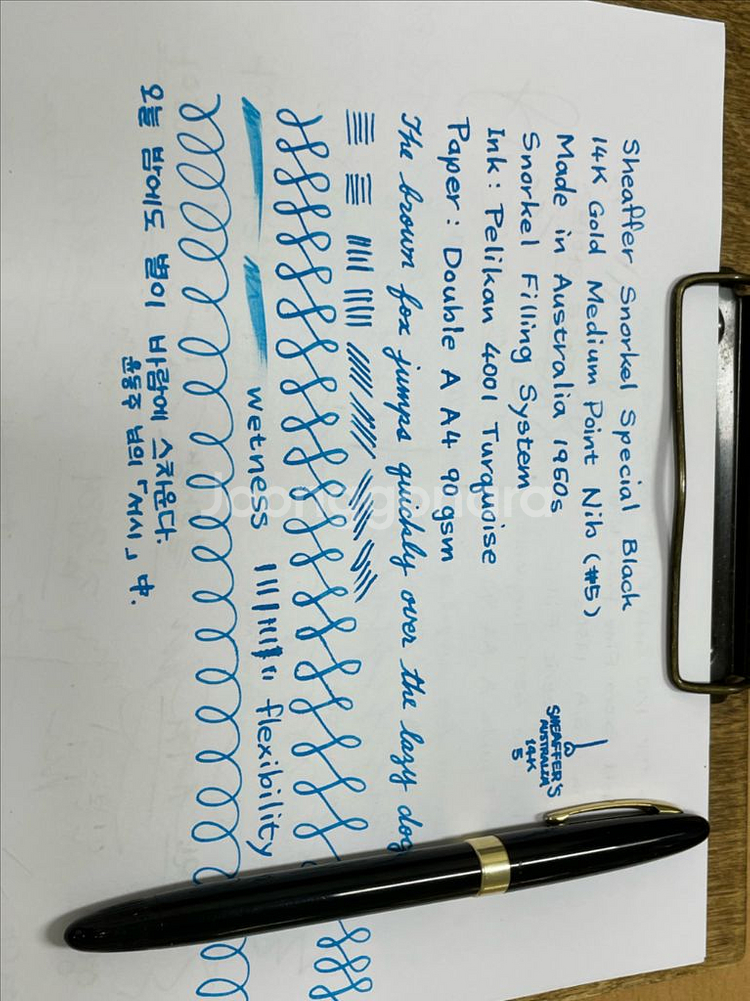 Sheaffer Snorkel Special Black
14K Gold Medium Point Nib (#5)
Made in Australia 1950s
Snorkel Filling System
Ink: Pelikan 4001 Turquoise
Paper: Double A A4 90gsm
SHEAFFER'S
AUSTRALIA
14K
5
The brown fox jumps quickly over the lazy dog
wetness flexibility
오늘 밤에도 별이 바람에 스치운다.
윤동주 님의 「서시」 中.
Joonggonara